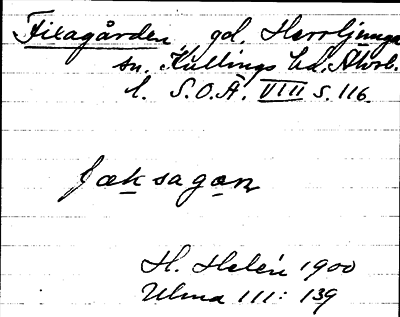 Fixagården gd. Herrljunga
sn. Kullings hd. Älvsb.
l. S.O.Ä. VIII s. 116.
fæksagɷn
H. Helén 1900
Ulma 111: 139